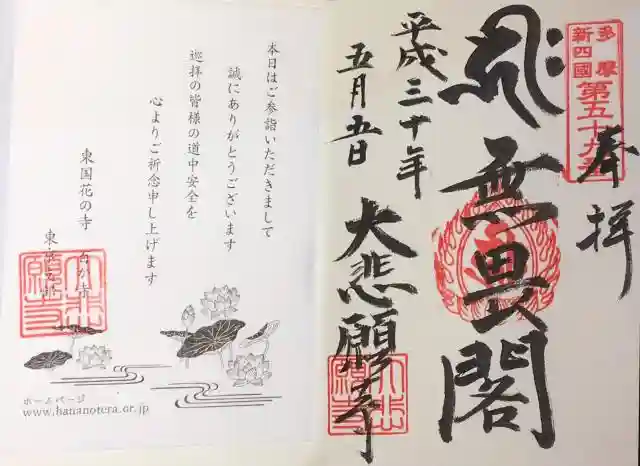 奉拝
多摩
新四國
第五十九番
無畏閣
平成三十年
五月五日
大悲願寺
本日はご参詣いただきまして
誠にありがとうございます
巡拝の皆様の道中安全を
心よりご祈念申し上げます
東国花の寺 百か寺
ホームページ
www.hananotera.or.jp